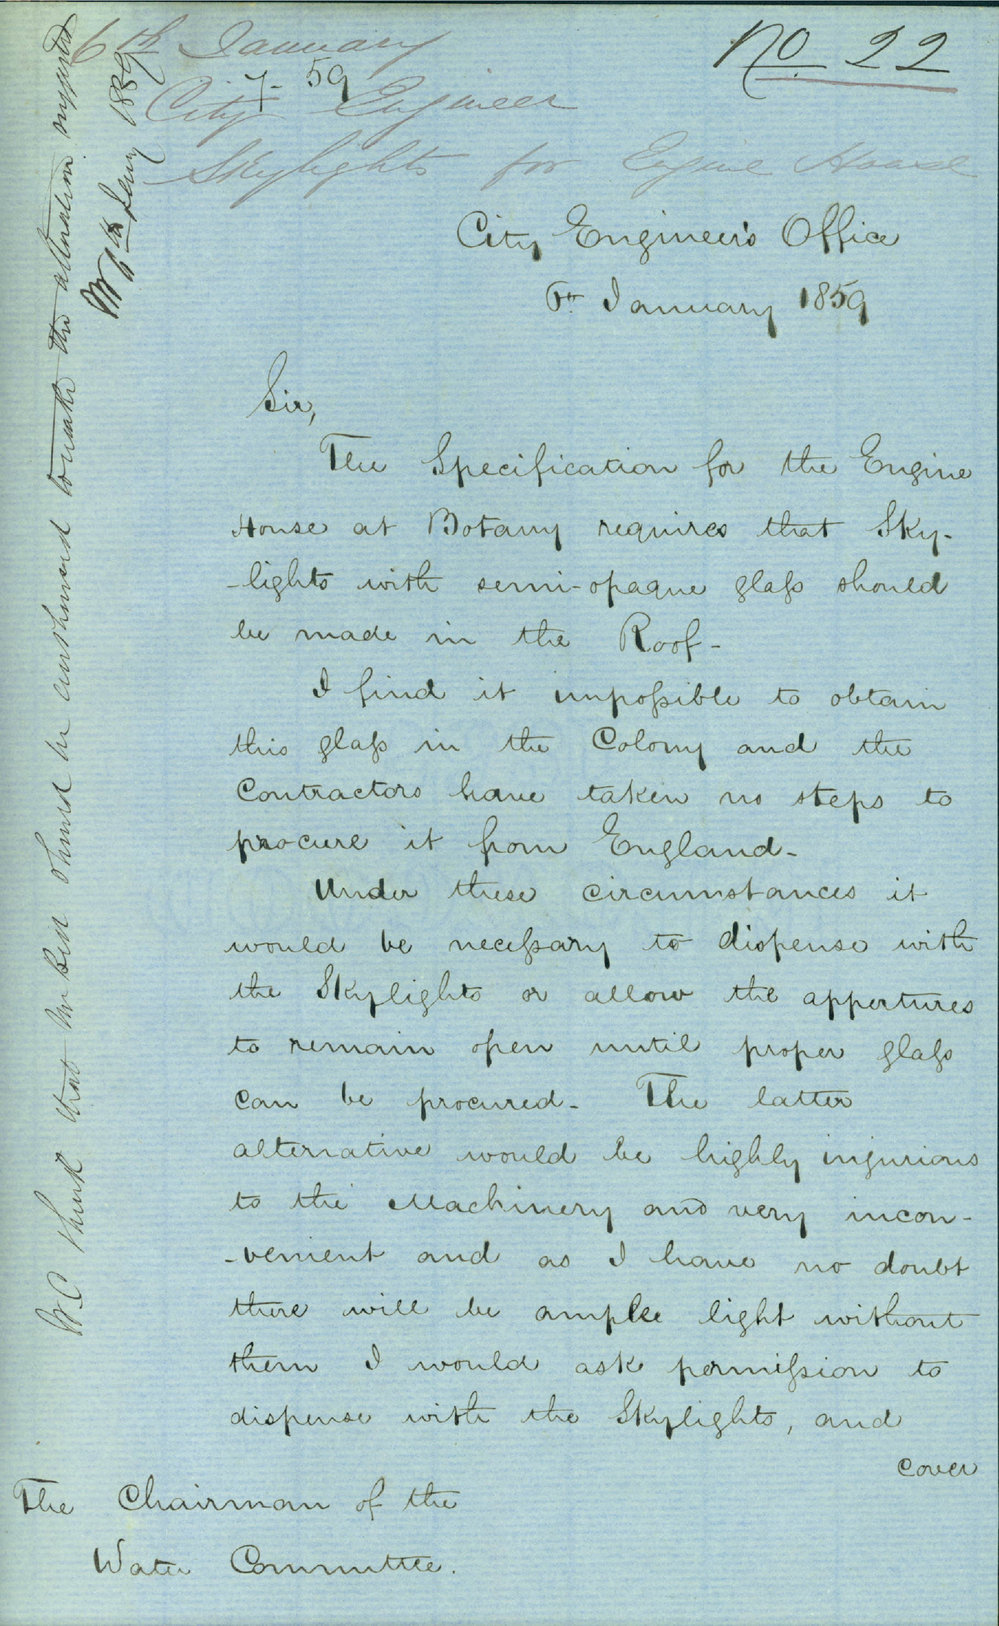 6th January
No. 22
7- 59
City Engineer
Skylights for Engine House
City Engineer's Office
6th January 1859
Sir,
The Specification for the Engine
House at Botany requires that Sky-
-lights with semi-opaque glass should
be made in the Roof -
I find it impossible to obtain
this glass in the Colony and the
Contractors have taken no steps to
procure it from England -
Under these circumstances it
would be necessary to dispense with
the Skylights or allow the appertures
to remain open until proper glass
can be procured - The latter
alternative would be highly injurious
to the Machinery and very incon-
-venient and as I have no doubt
there will be ample light without
them I would ask permission to
dispense with the Skylights, and
cover
The Chairman of the
Water Committee.
W.C. think that Mr Bell should be authorised to make the alteration suggested
6th Jany 1859